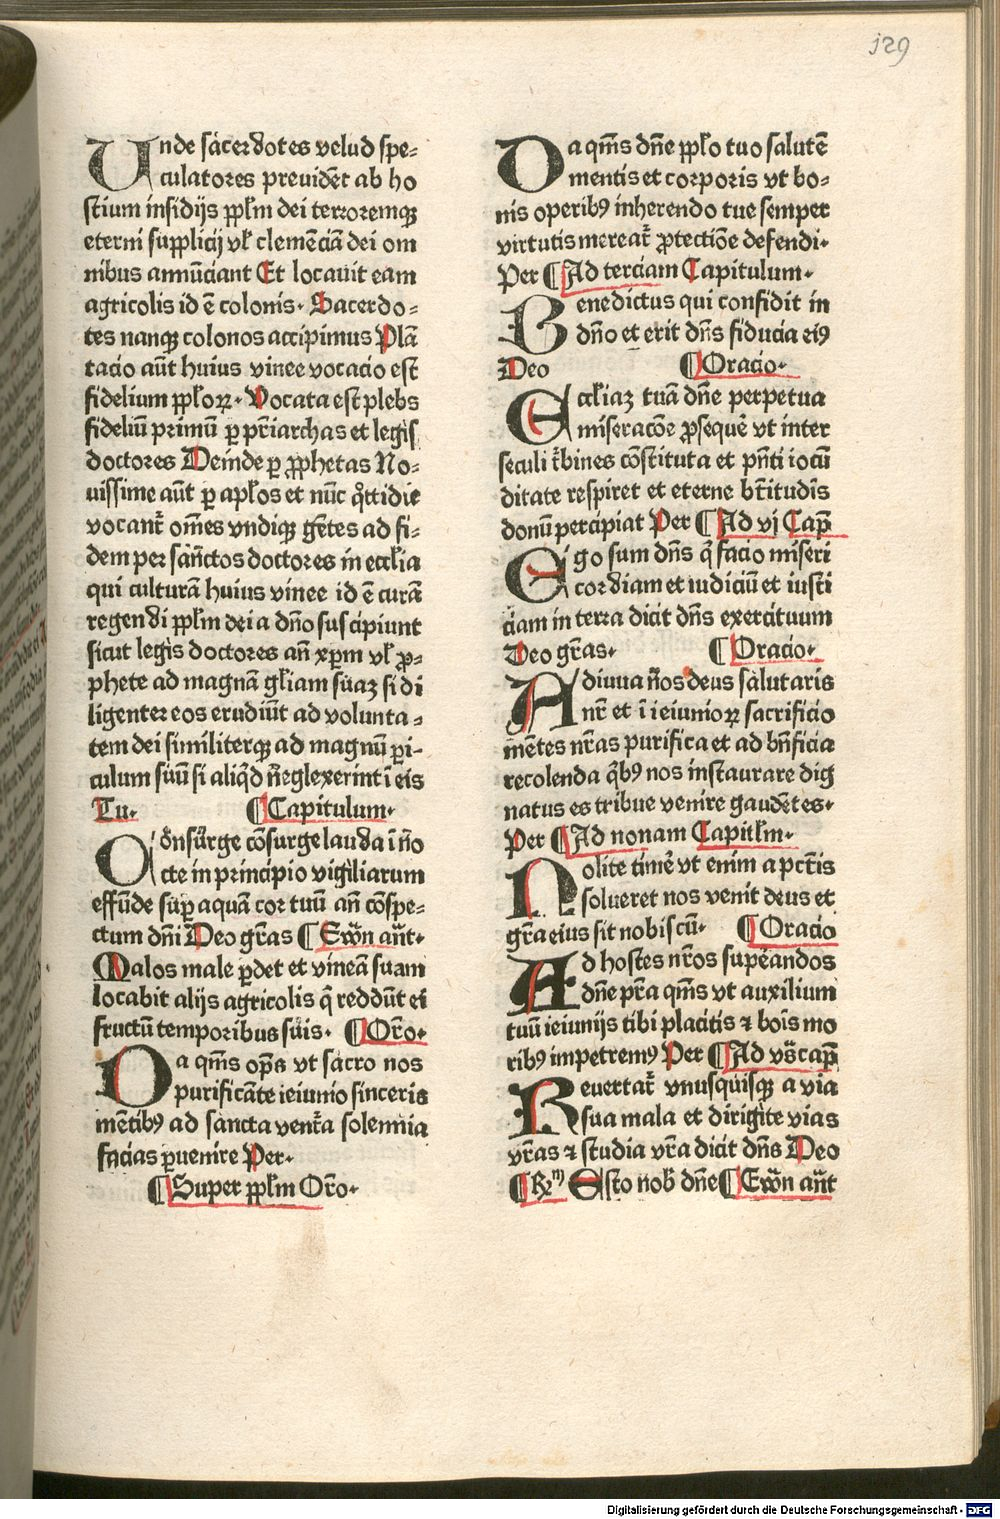 129
Unde sacerdotes velud spe⸗
culatores previdēt ab ho
stium insidijs ppl̄m dei terroremqꝫ
eterni supplicij vl̄ clemēciā dei om
nibus annūciant Et locavit eam
agricolis id ē colonis· Sacerdo⸗
tes nanqꝫ colonos accipimus Plā
tacio aūt huius vinee vocacio est
fidelium pploꝝ· Vocata est plebs
fideliū primū ꝑ pr̄iarchas et legis
doctores Deinde ꝑ ꝓphetas No⸗
uissime aūt ꝑ apl̄os et nūc qͦttidie
vocant᷑ om̄es vndiqꝫ gētes ad fi⸗
dem per sanctos doctores in eccl̄ia
qui culturā huius vinee id ē curā
regendi ppl̄m dei a dn̄o suscipiunt
sicut legis doctores an̄ xp̄m vl̄ ꝓ⸗
phete ad magnā gl̄iam suaꝫ si di
ligenter eos erudiūt ad volunta⸗
tem dei similiterqꝫ ad magnū ꝑi⸗
culum suū si aliqͥd neglexerint ī eis
Tu· ¶Capitulum·
Cōnsurge cōsurge lauda ī no
cte in principio vigiliarum
effūde sup̄ aquā cor tuū an̄ cōspe⸗
ctum dn̄i Deo gr̄as ¶Ewn̄ aūt·
Malos male ꝑdet et vineā suam
locabit alijs agricolis q̄ reddūt ei
fructū temporibus suis· ¶Or̄o·
Da qm̄s op̄s vt sacro nos
purificāte ieiunio sinceris
mētibꝰ ad sancta vent᷑a solennia
facias ꝑuenire Per·
¶Super ppl̄m Or̄o·
Da qm̄s dn̄e pplo tuo salutē
mentis et corporis vt bo⸗
nis operibꝰ inherendo tue semper
virtutis mereat᷑ ꝓtectiōe defendi·
Per ¶Ad terciam Capitulum·
Benedictus qui confidit in
dn̄o et erit dn̄s fiducia eiꝰ
Deo ¶Oracio·
Eccl̄iaꝫ tuā dn̄e perpetua
miseracōe ꝓsequē vt inter
seculi t᷑bines cōstituta et pn̄ti iocū
ditate respiret et eterne bt̄itudīs
donū percipiat Per ¶Ad vj Cap̄
Ego sum dn̄s qͥ facio miseri
cordiam et iudiciū et iusti
ciam in terra dicit dn̄s exercituum
Deo gr̄as· ¶Oracio·
Adiuua nos deus salutaris
nr̄ et ī ieiunioꝝ sacrificio
mētes nr̄as purifica et ad bn̄ficia
recolenda qͥbꝰ nos instaurare dig
natus es tribue venire gaudētes·
Per ¶Ad nonam Capitl̄m·
Nolite timē vt enim a pct̄is
solueret nos venit deus et
gr̄a eius sit nobiscū· ¶Oracio
Ad hostes nr̄os supēandos
dn̄e pr̄a qm̄s vt auxilium
tuū ieiunijs tibi placitis ⁊ boīs mo
ribꝰ impetremꝰ Per ¶Ad vs̄ cap̄
Revertat᷑ vnusquisqꝫ a via
sua mala et dirigite vias
vr̄as ⁊ studia vr̄a dicit dn̄s Deo
¶Rm̄ Esto nob̄ dn̄e ¶Ewn̄ aūt
Digitalisierung gefördert durch die Deutsche Forschungsgemeinschaft - DFG